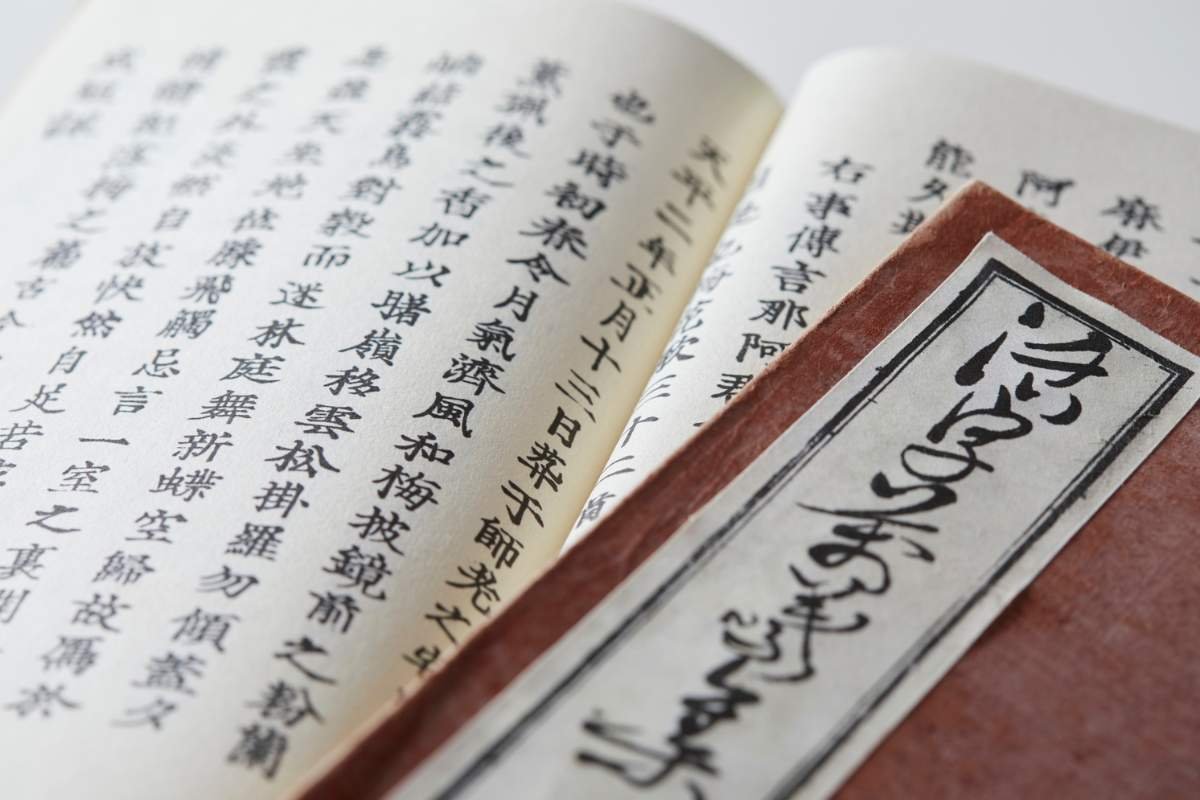 麻伊
阿
能久
右事傳言那阿君
花歌三十二首
天平二年正月十三日萃于師老之宅
也于時初春令月氣濟風和梅披鏡前之粉蘭
薫珮後之香加以曙嶺移雲松掛羅勿傾蓋夕
岫結霧鳥對縠而迷林庭舞新蝶空歸故鴈於
是蓋天坐地促膝飛觴忘言一室之裏開
霞之外淡然自放快然自足若
情請紀落梅之篇古今
成短詠
活字萬葉集